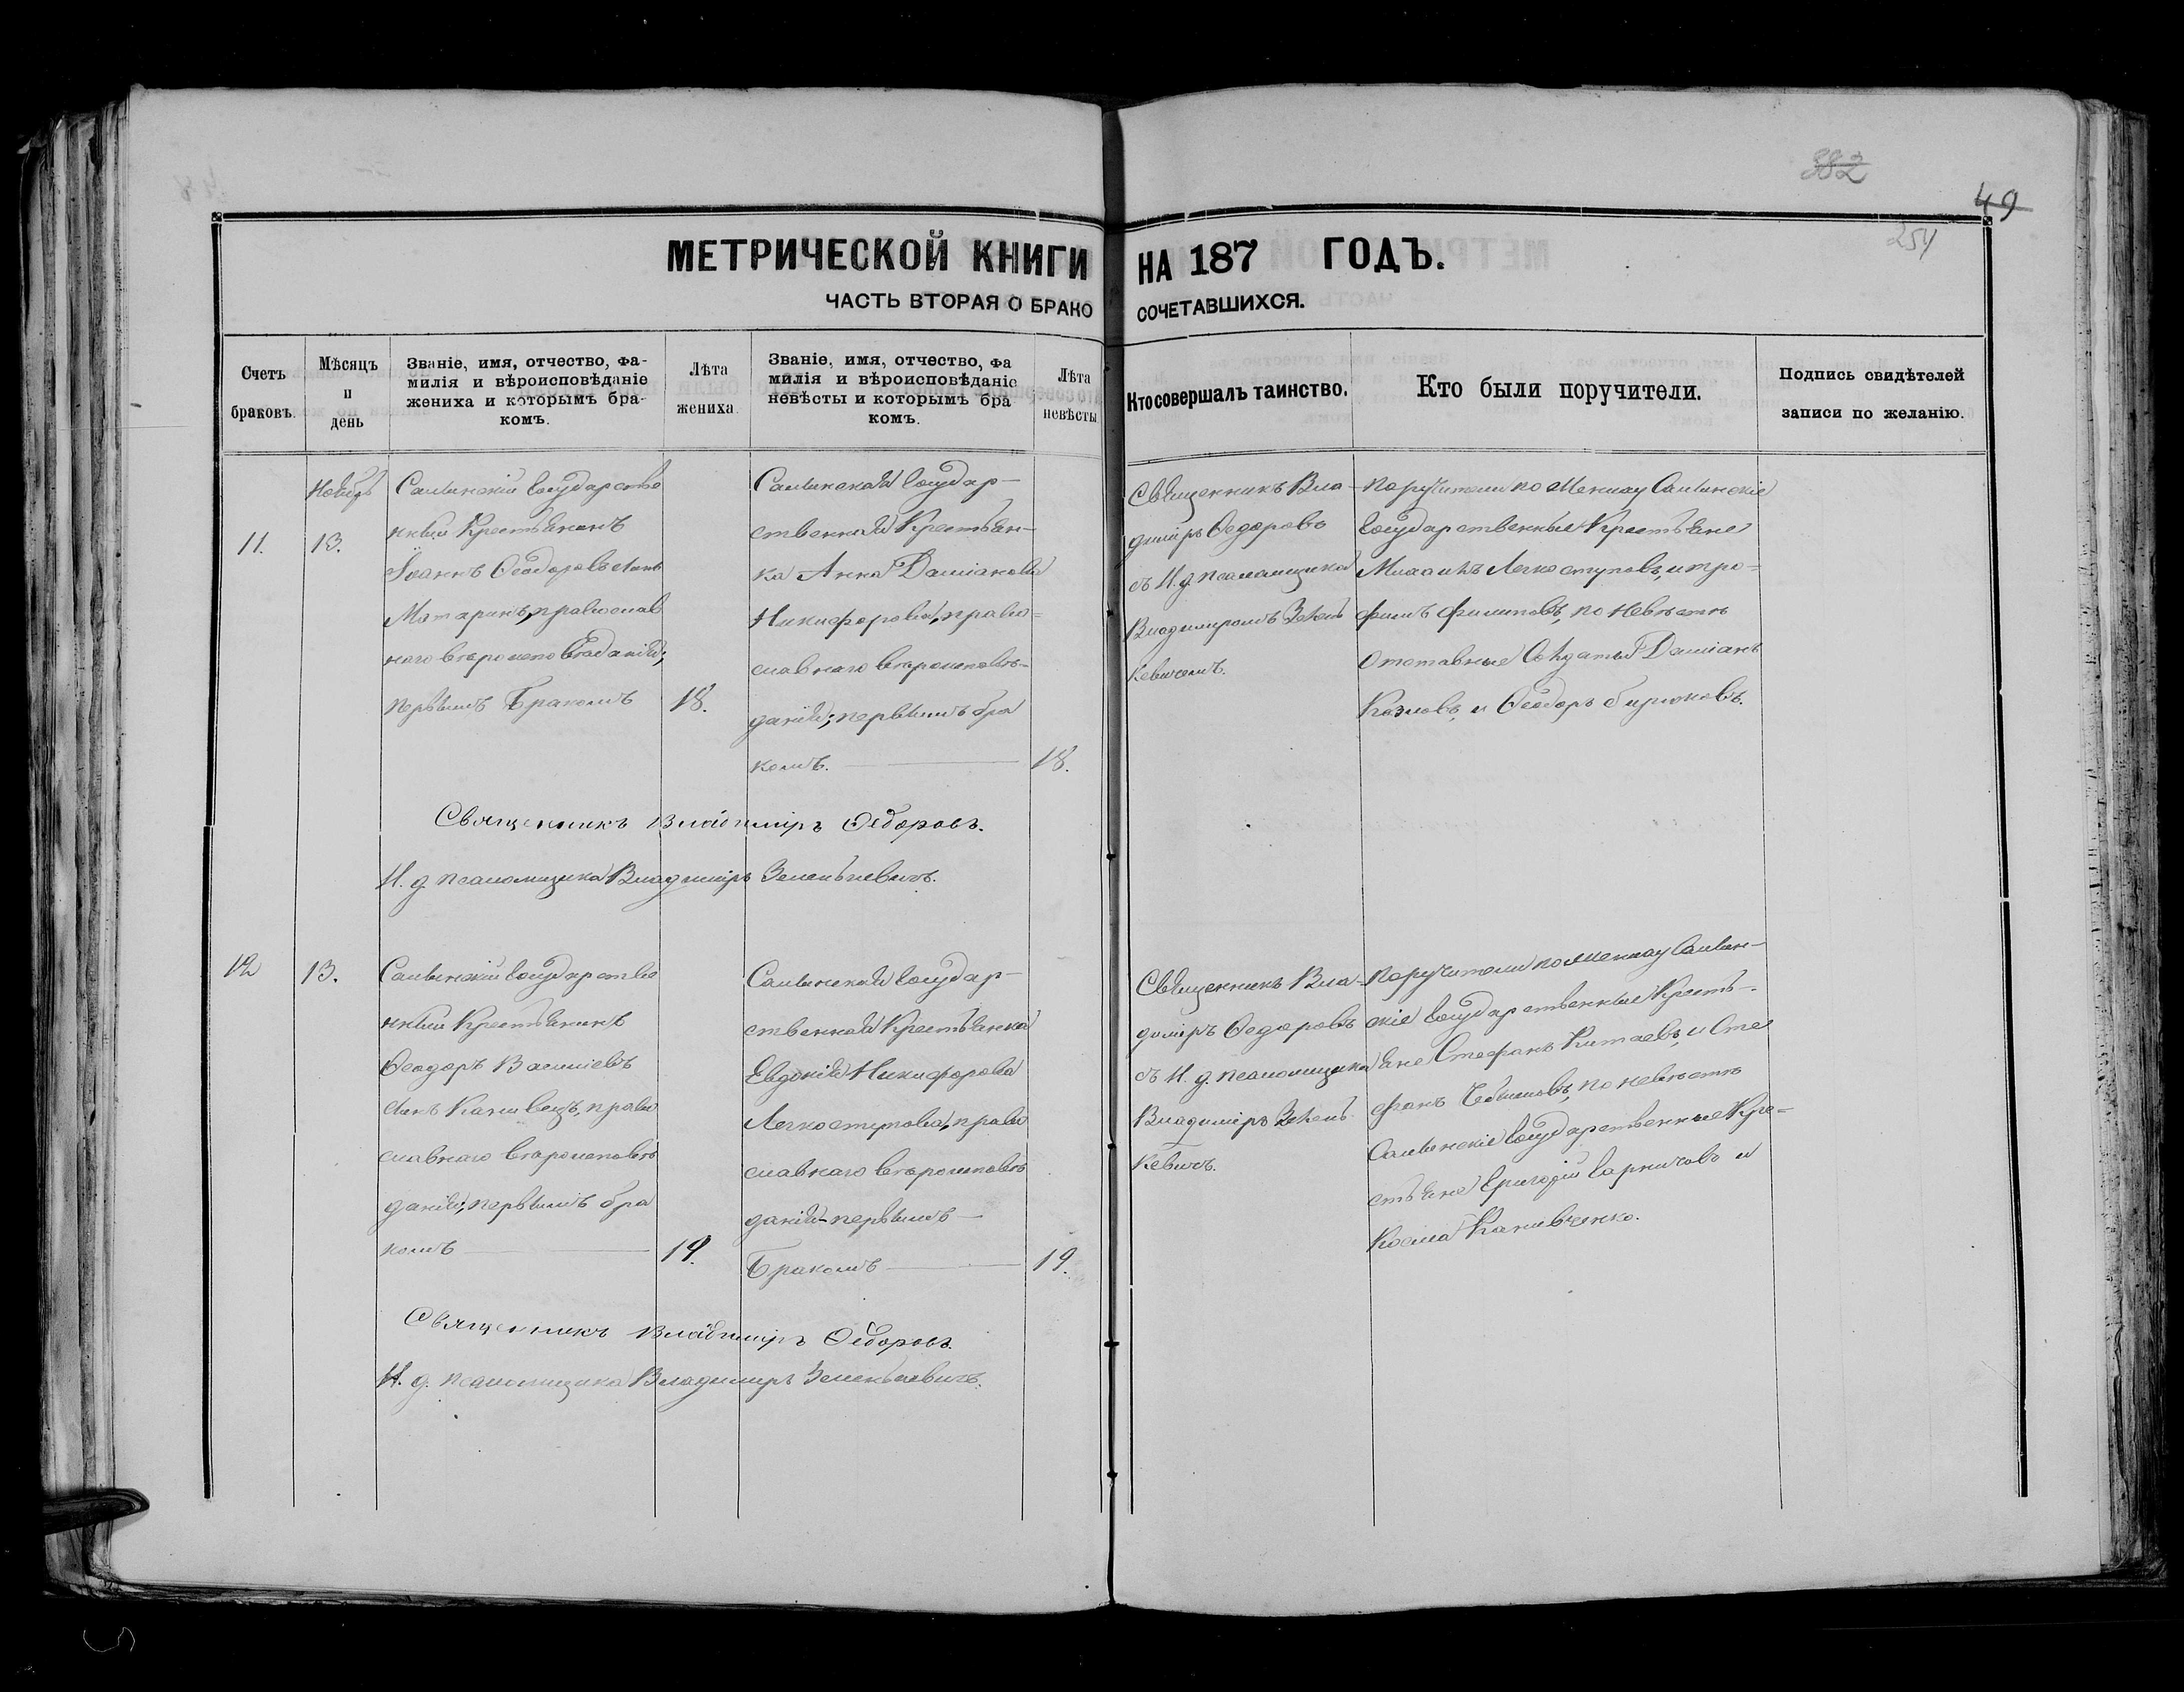 382
49
254
МЕТРИЧЕСКОЙ КНИГИ НА 187 ГОДЪ.
ЧАСТЬ ВТОРАЯ О БРАКО СОЧЕТАВШИХСЯ.
Счетъ браковъ.
Мѣсяцъ и день
Званіе, имя, отчество, фа-
милія и вѣроисповѣданіе
жениха и которымъ бра-
комъ.
Лѣта жениха.
Званіе, имя, отчество, фа
милія и вѣроисповѣданіе
невѣсты и которымъ бра
комъ.
Лѣта невѣсты
Кто совершалъ таинство.
Кто были поручители.
Подпись свидѣтелей
записи по желанію.
11.
Ноябрь
13.
Салынскій Государстве
нный Крестьянинъ
Іоаннъ Ѳеодоровъ сынъ
Матаринъ, православ
наго вѣроисповѣданія;
первымъ Бракомъ
18.
Салынская Государ-
ственная Крестьян-
ка Анна Даміанова
Никифорова, право-
славнаго вѣроисповѣ-
данія; первымъ бра
комъ.
18.
Священникъ Вла-
диміръ Ѳедоровъ
съ И. д. псаломщика
Владимиромъ Зелень
кевичемъ.
Поручители по Жениху Салынскіе
Государственные Крестьяне
Легкоступовъ, и Тро-
фимъ Филиповъ, по Невѣстѣ
Отставные Солдаты Даміанъ
Козловъ, и Ѳеодоръ Бирюковъ.
Священникъ Владиміръ Ѳедоровъ.
И. д. псаломщика Владиміръ Зеленькевичъ.
12
13.
Салынскій Государстве
нный Крестьянинъ
Ѳеодоръ Василіевъ
сынъ Канивецъ, право
славнаго вѣроисповѣ
данія; первымъ бра
комъ
19.
Салынская Государ-
ственная Крестьянка
Евдокія Никифорова
Легкоступова, право
славнаго вѣроисповѣ
данія первымъ
Бракомъ
19.
Священникъ Вла-
диміръ Ѳедоровъ
съ И. д. псаломщика
Владиміръ Зелень
кевичъ.
Поручители по Жениху Салын-
скіе Государственные Кресть-
яне Стефанъ Китаевъ, и Сте
фанъ по невѣстѣ
Салынскіе Государственные Кре-
стьяне Григорій и
Косма Канивченко.
Священникъ Владиміръ Ѳедоровъ.
И. д. псаломщика Владимиръ Зеленькевичъ.